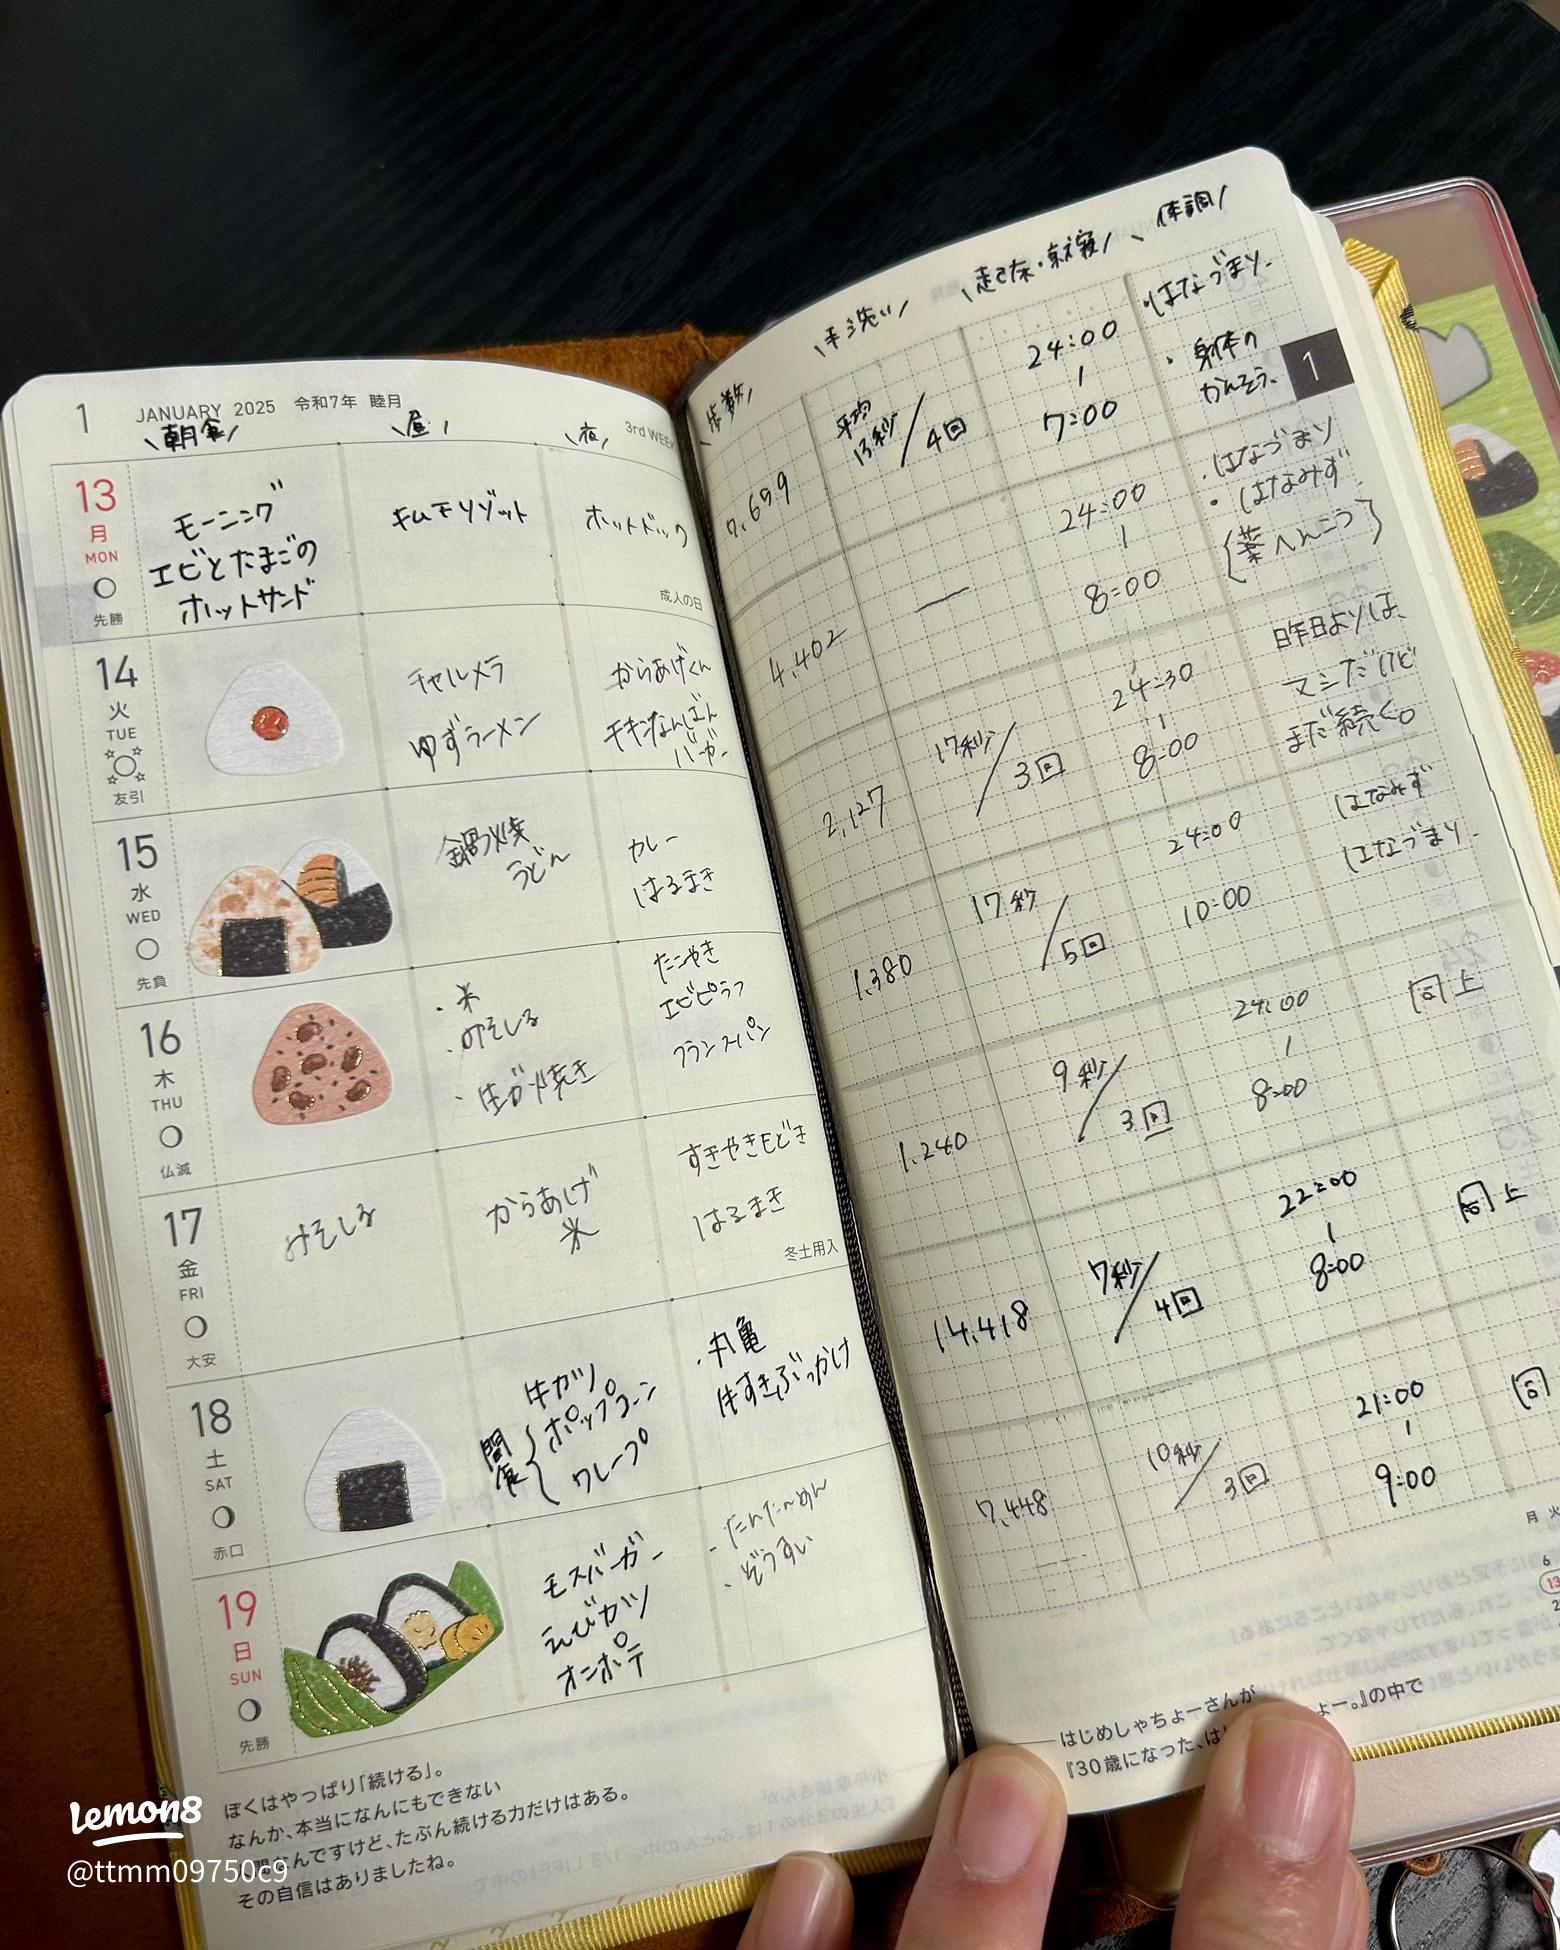 1 JANUARY 2025 令和7年 睦月
3rd WEEK
朝食
昼
夜
13
月
MON
先勝
モーニング
エビとたまごの
ホットサンド
キムチリゾット
ホットドック
成人の日
14
火
TUE
友引
チャルメラ
ゆずラーメン
からあげくん
チキンなんばん
バーガー
15
水
WED
先負
鍋焼
うどん
カレー
はるまき
16
木
THU
仏滅
・米
・みそしる
・生が焼き
たこやき
エビピラフ
フランスパン
17
金
FRI
大安
みそしる
からあげ
米
すきやきもどき
はるまき
冬土用入
18
土
SAT
赤口
牛カツ
間食
ポップコーン
クレープ
・丸亀
牛すきぶっかけ
19
日
SUN
先勝
モスバーガー
えびカツ
オニポテ
・たんたんめん
・ぞうすい
ぼくはやっぱり「続ける」。
なんか、本当になんにもできない
人間なんですけど、たぶん続ける力だけはある。
その自信はありましたね。
歩数
手洗い
起床・就寝
体調
1
7,659
平均
13秒/4回
24:00
7:00
・はなづまり
・身体の
かんそう
4,402
24:00
8:00
・はなづまり
・はなみず
(薬へんこう)
2,127
17秒/3回
24:30
8:00
昨日よりは、
マシだけど
まだ続く。
1,380
17秒/5回
24:00
10:00
はなみず
はなづまり
1,240
9秒/3回
24:00
8:00
同上
14,418
7秒/4回
22:00
8:00
同上
7,448
10秒/3回
21:00
9:00
同
月 火
6
13
はじめしゃちょーさんが
『30歳になった、は
ょー。』の中で
Lemon8
@ttmm09750c9